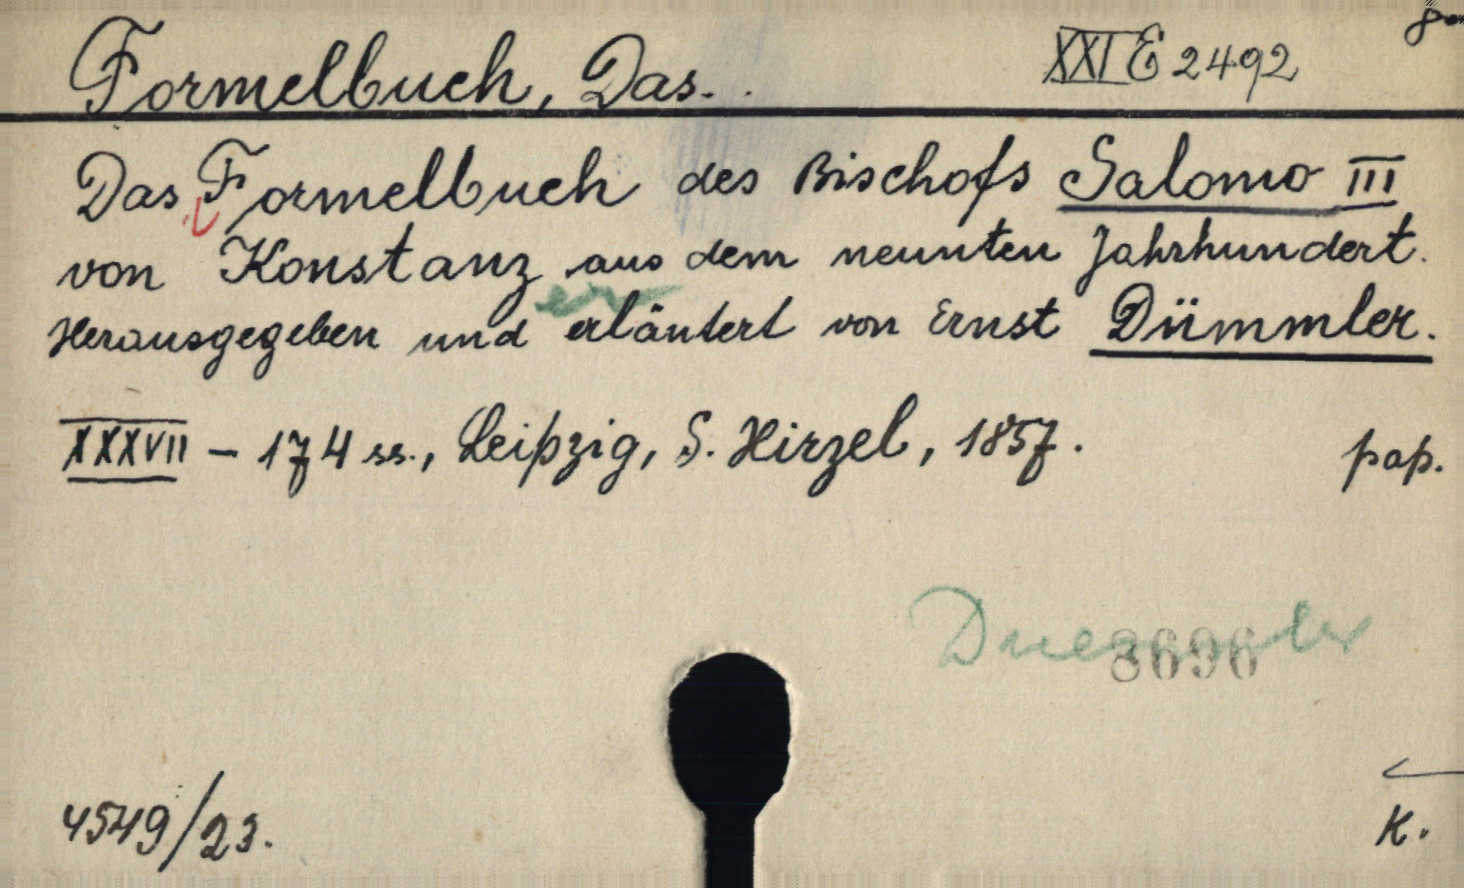 Formelbuch, Das. XXI E 2492
Das Formelbuch des Bischofs Salomo III
von Konstanz aus dem neunten Jahrhundert.
er
Herausgegeben und erläutert von Ernst Dümmler.
XXXVII – 174 ss., Leipzig, S. Hirzel, 1857. pap.
Duemmler
3696
4549/23.
K.